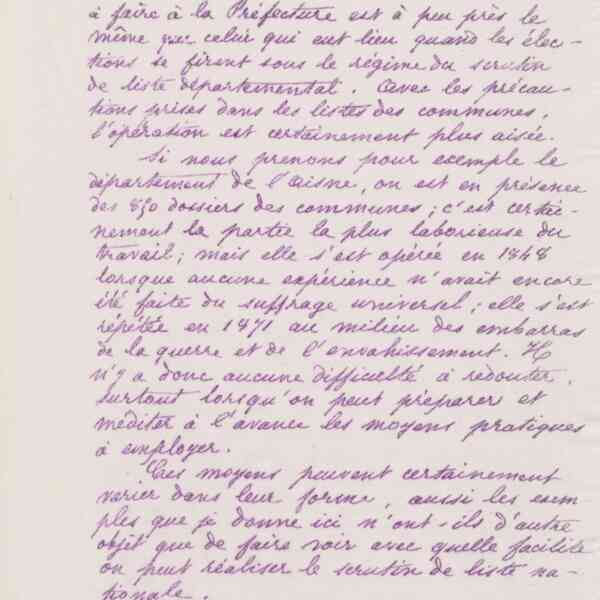 à faire à la Préfecture est à peu près le
même que celui qui eut lieu quand les élec-
tions se firent sous le régime du scrutin
de liste départemental. Avec les précau-
tions prises dans les listes des communes,
l'opération est certainement plus aisée.
Si nous prenons pour exemple le
département de l'Aisne, on est en présence
des 850 dossiers des communes; c'est certai-
nement la partie la plus laborieuse du
travail; mais elle s'est opérée en 1848
lorsque aucune expérience n'avait encore
été faite du suffrage universel; elle s'est
répétée en 1871 au milieu des embarras
de la guerre et de l'envahissement. Il
n'y a donc aucune difficulté à redouter,
surtout lorsqu'on peut préparer et
méditer à l'avance les moyens pratiques
à employer.
Ces moyens peuvent certainement
varier dans leur forme, aussi les exem
ples que je donne ici n'ont-ils d'autre
objet que de faire voir avec quelle facilité
on peut réaliser le scrutin de liste na-
tionale.